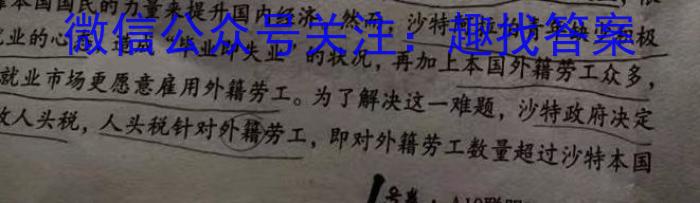 本国国民的力量来提升国内经济。然而,沙特
业的心
微信公众号关注:趣找答案
毕业即失业"的状况,再加上本国外籍劳工众多,
就业市场更愿意雇用外籍劳工。为了解决这一难题,沙特政府决定
收人头税,人头税针对外籍劳工,即对外籍劳工数量超过沙特本国